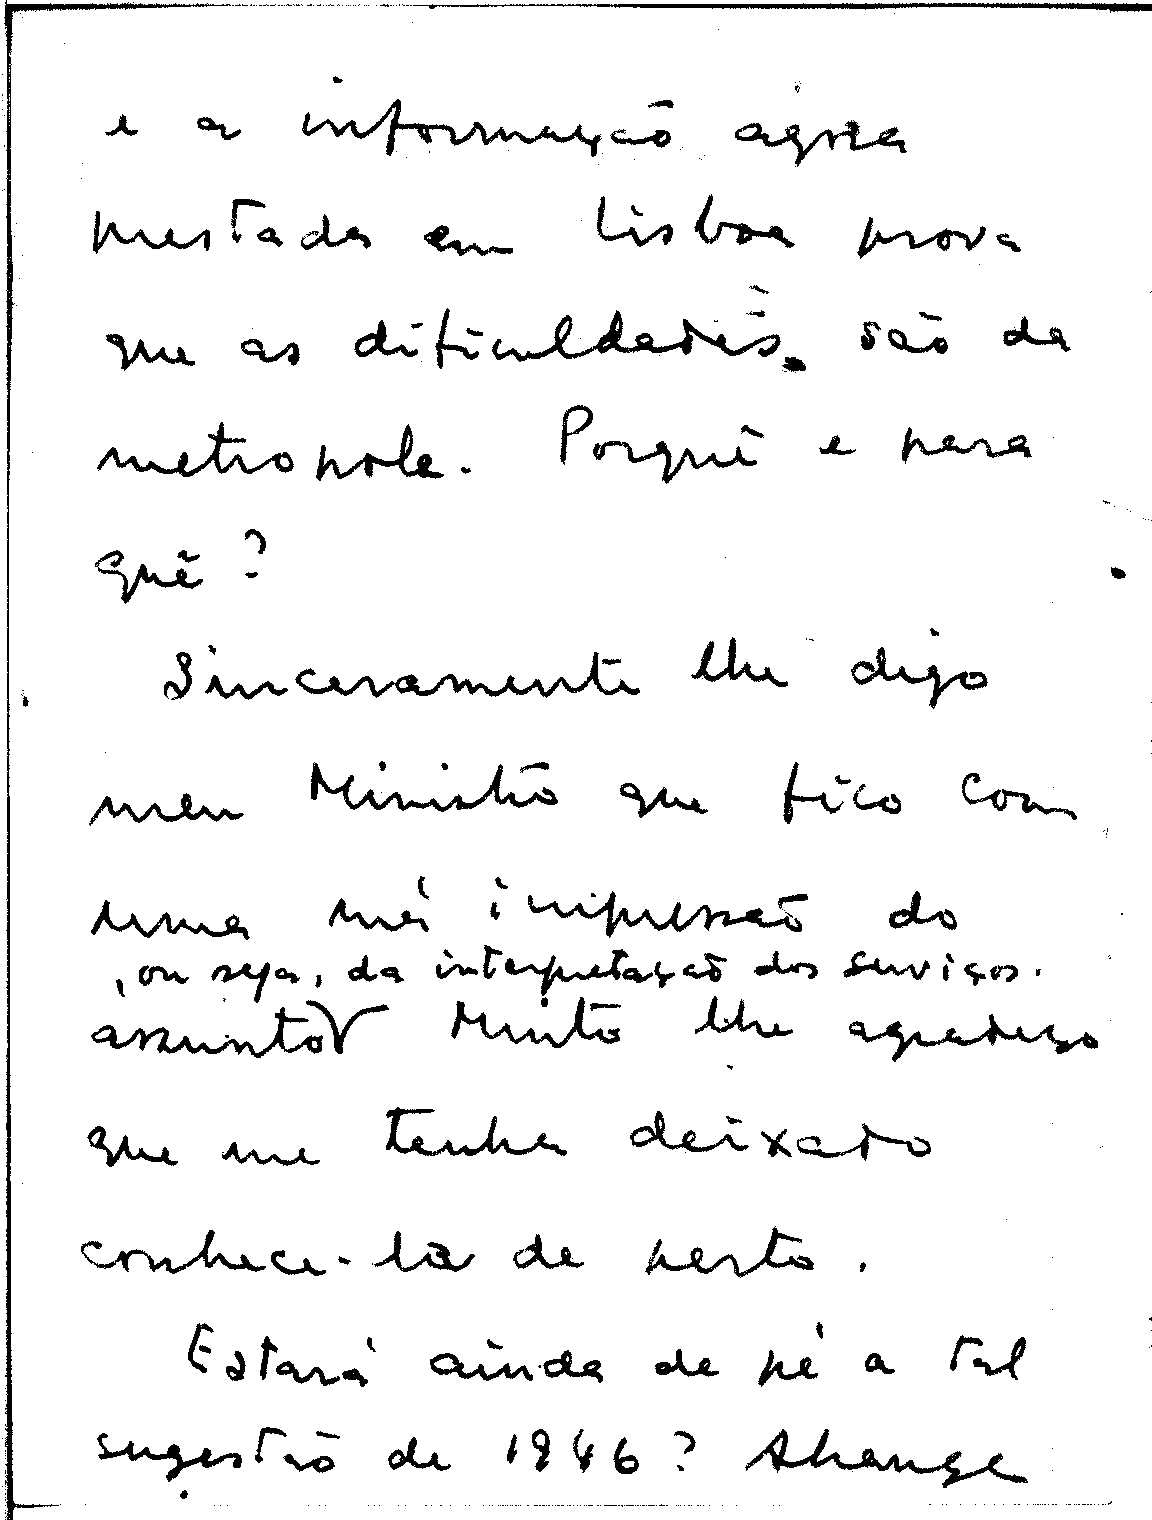 e a informação agora
prestada em Lisboa prova
que as dificuldades são da
metropole. Porquê e para
quê?
Sinceramente lhe digo
meu Ministro que fico com
uma má impressão do
, ou seja, da interpretação dos serviços.
assunto Muito lhe agradeço
que me tenha deixado
conhece-la de perto.
Estará ainda de pé a tal
sugestão de 1946?